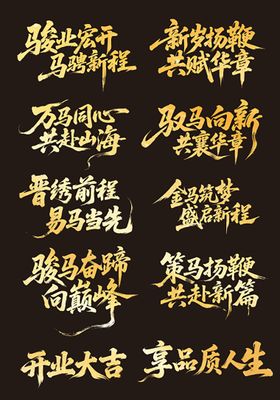 骏业宏开
马骋新程
新岁扬鞭
共赋华章
万马同心
共赴山海
驭马向新
共襄华章
晋绣前程
易马当先
金马筑梦
盛启新程
骏马奋蹄
向巅峰
策马扬鞭
共赴新篇
开业大吉
享品质人生